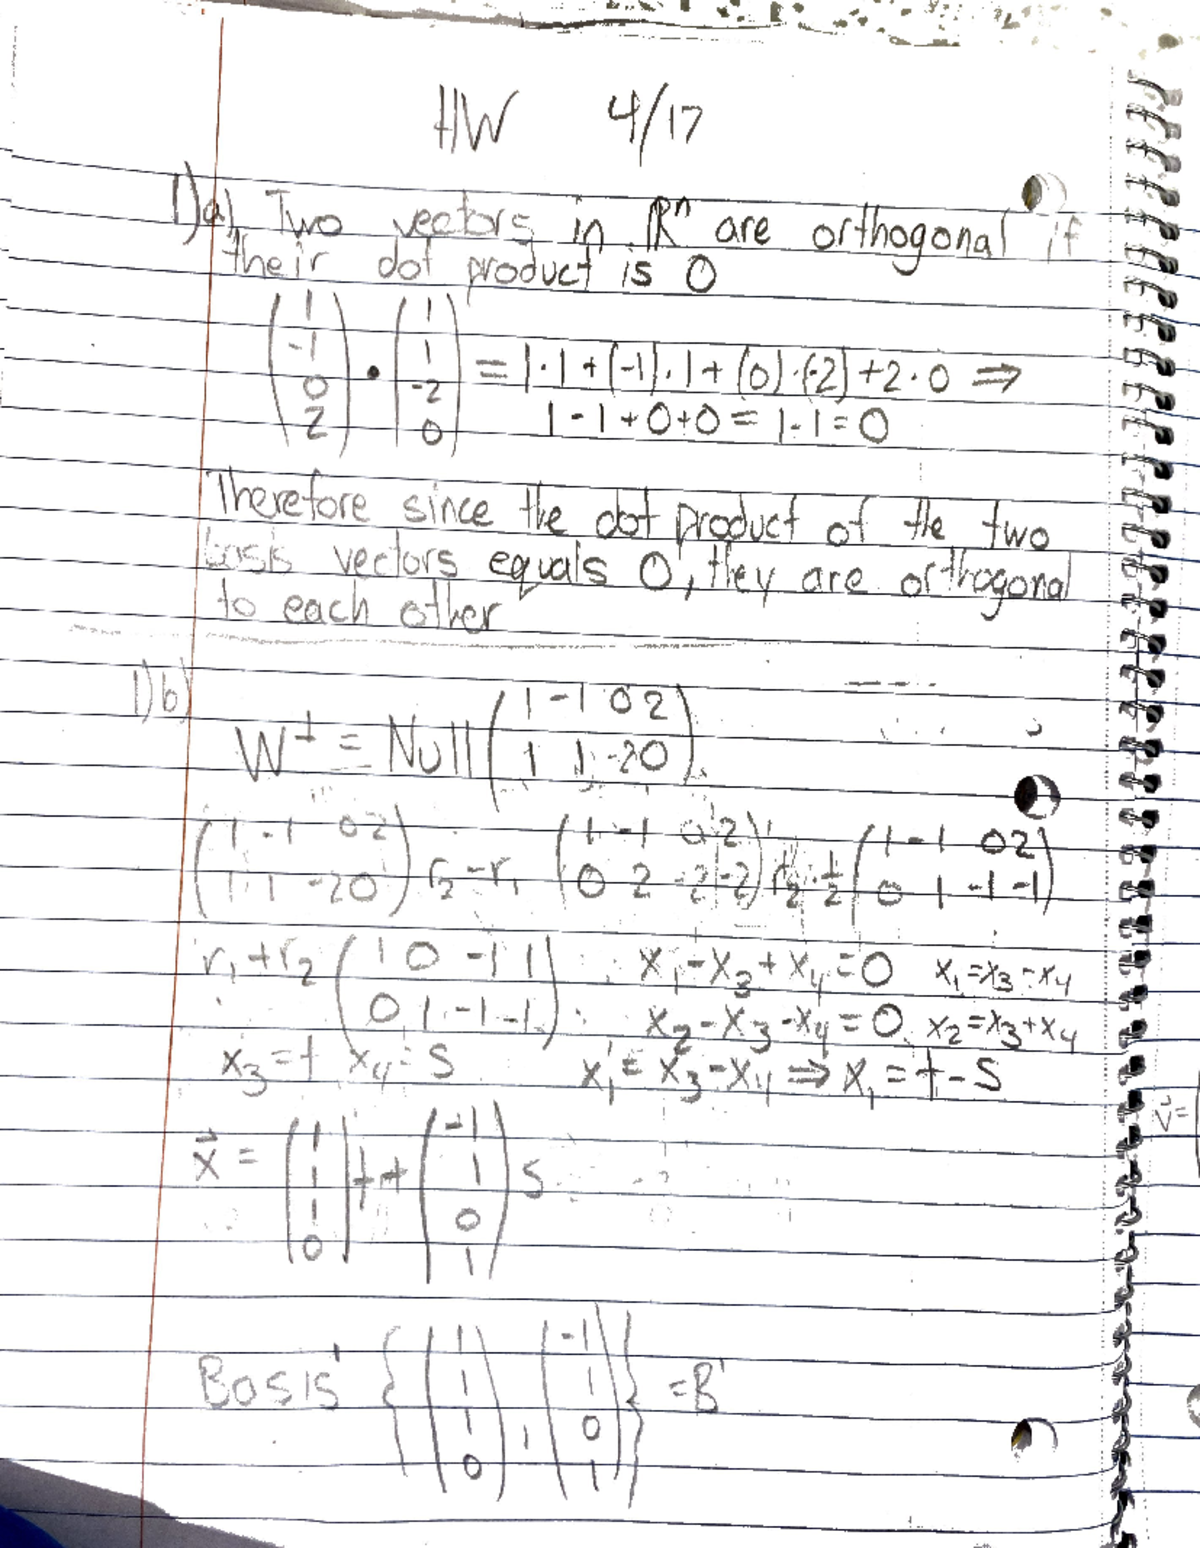 HW 4/17
1)a) Two vectors in ℝⁿ are orthogonal if
their dot product is 0
(1 -1 0 2) • (1 1 -2 0) = 1·1+(-1)·1+(0)·(-2)+2·0 ⇒
1-1+0+0=1-1=0
Therefore since the dot product of the two
basis vectors equals 0, they are orthogonal
to each other
1)b)
W^⊥ = Null (1 -1 0 2
1 1 -2 0)
(1 -1 0 2
1 1 -2 0) r₂-r₁ (1 -1 0 2
0 2 -2 -2) r₂·½ (1 -1 0 2
0 1 -1 -1)
r₁+r₂ (1 0 -1 1
0 1 -1 -1)
x₁-x₃+x₄=0 x₁=x₃-x₄
x₂-x₃-x₄=0 x₂=x₃+x₄
x₃=t x₄=s x₁=x₃-x₄ ⇒ x₁=t-s
x⃗ = (1 1 1 0) t + (-1 1 0 1) s
Basis { (1 1 1 0), (-1 1 0 1) } = B'
v⃗=